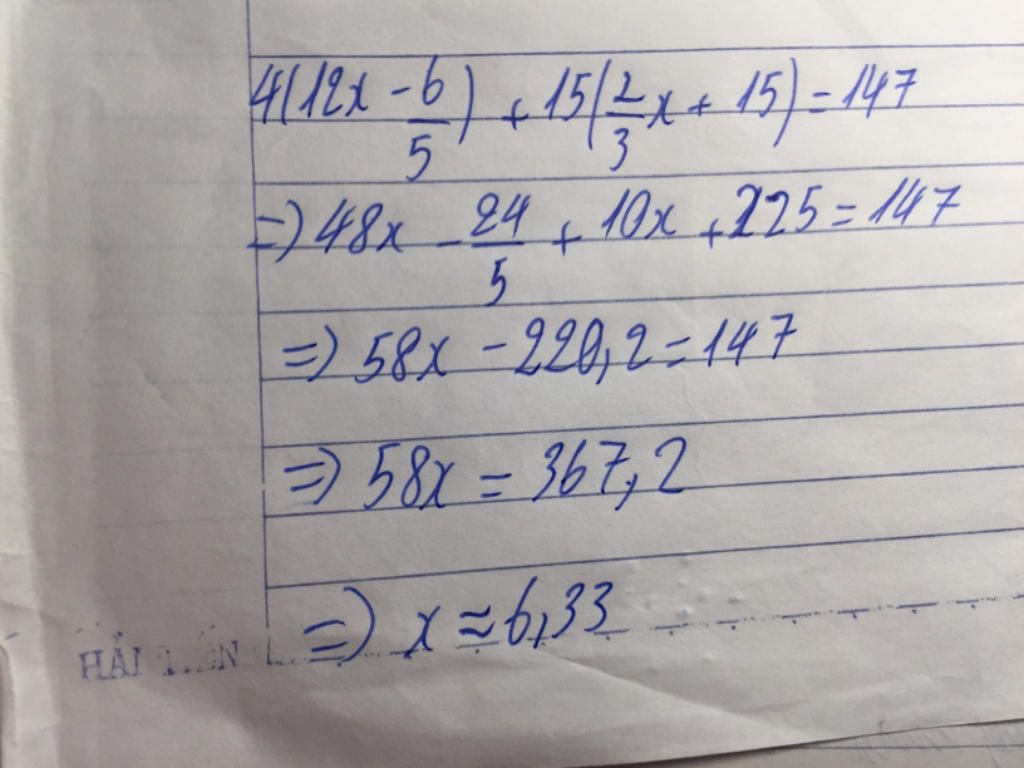 4(12x - 6/5) + 15(2/3 x + 15) = 147
=) 48x - 24/5 + 10x + 225 = 147
=) 58x - 220,2 = 147
=) 58x = 367,2
=) x ≈ 6,33
HẢI TIẾN